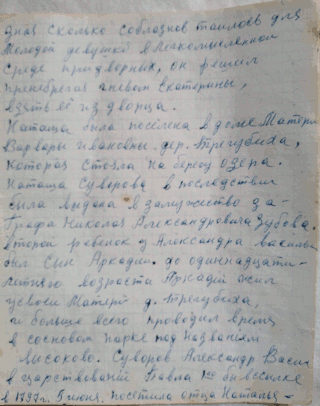 зная сколько соблазнов таилось для
молодой девушки в легкомысленной
среде придворных, он решил
пренебрегая гневом Екатерины,
взять её из дворца.
Наташа была поселена в доме Матери
Варвары Ивановны. дер. Трегубиха,
которая стояла на берегу озера.
Наташа Суворова в последствии
была выдана в замужество за-
Графа Николая Александровича Зубова.
второй ребенок у Александра васильe
был Сын Аркадий. до одиннадцати-
летнего возраста Аркадий жил
у своей Матери д. Трегубиха,
и больше всего проводил время
в сосновом парке под названием
Лысоково. Суворов Александр Васи
в царствований Павла 1го был в ссылке
в 1797г. 5 июня. посетила отца Наталья -